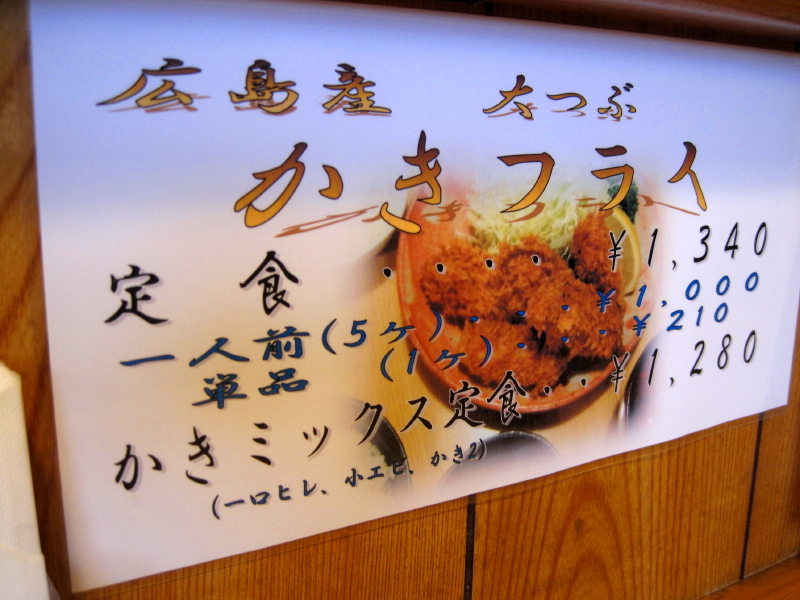 広島産 大つぶ
かきフライ
定食....¥1,340
一人前(5ヶ)...¥1,000
単品(1ヶ)...¥210
かきミックス定食..¥1,280
(一口ヒレ、小エビ、かき2)